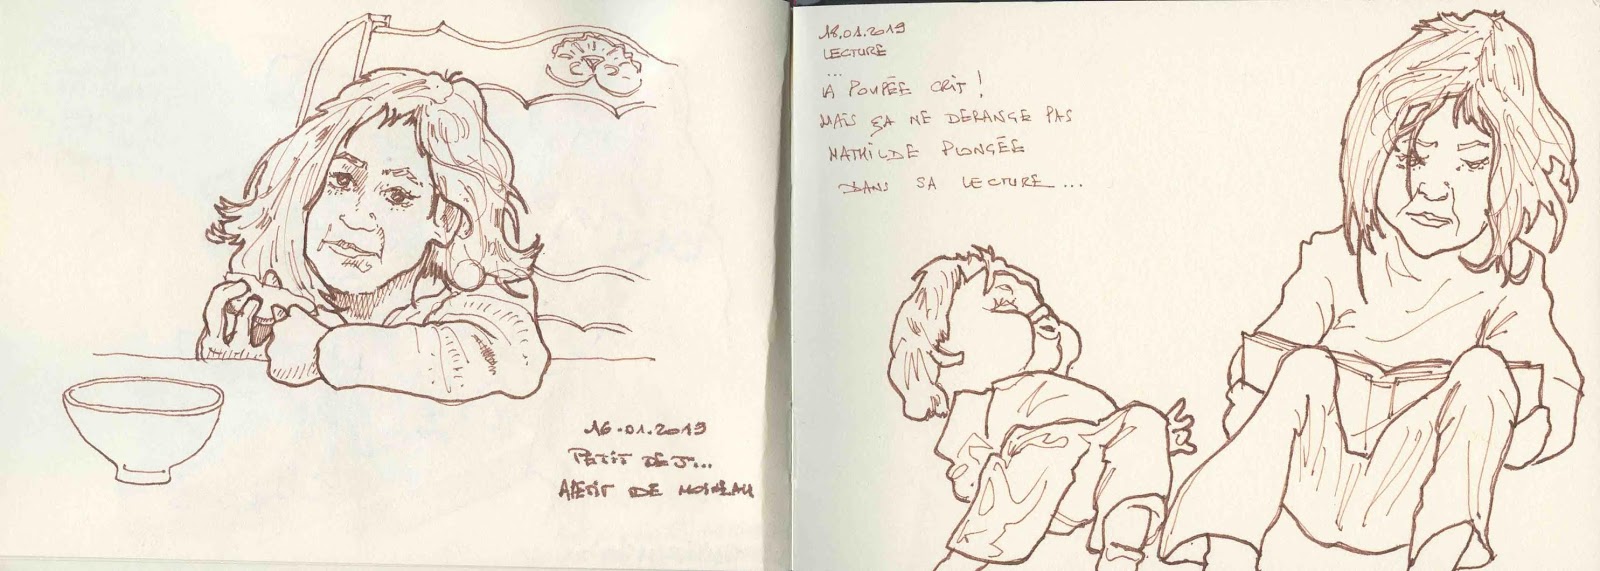 16.01.2019
PETIT DE J...
APETIT DE MOINEAU
18.01.2019
LECTURE
...
LA POUPÉE CRIT !
MAIS ÇA NE DERANGE PAS
MATHILDE PLONGÉE
DANS SA LECTURE ...